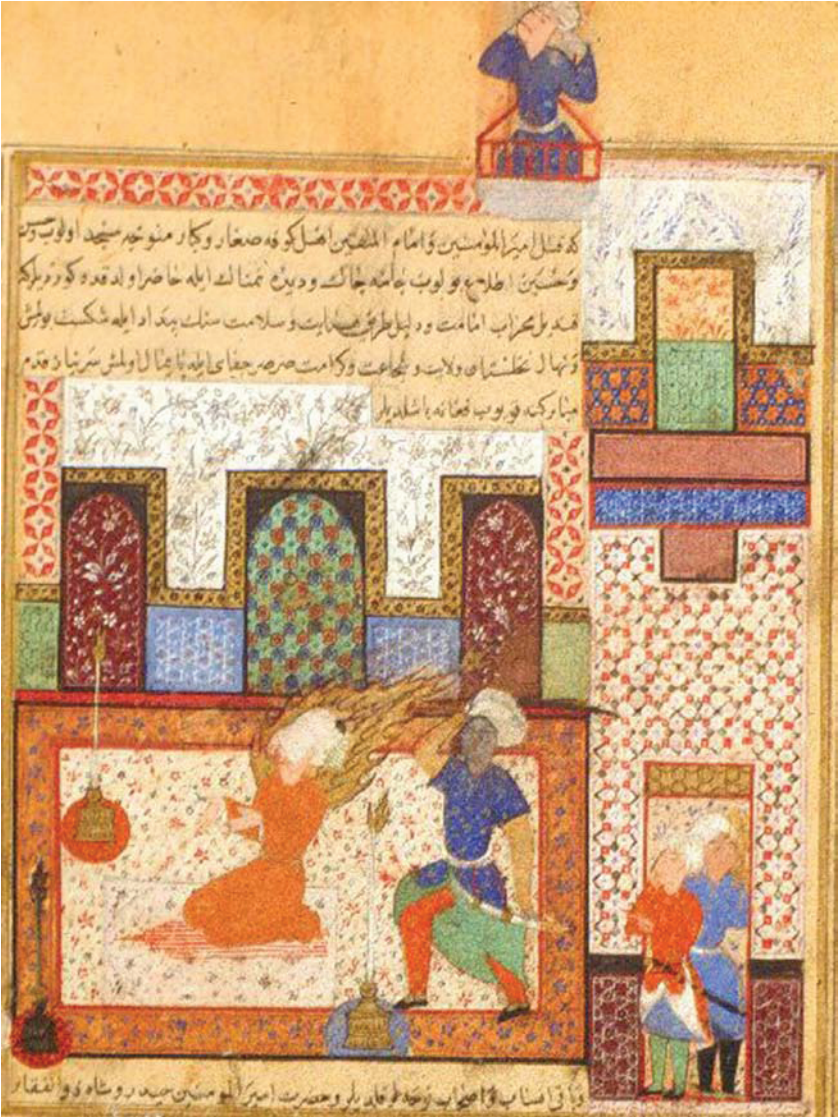 که قتل امیرالمؤمنین و امام المتقین اهل کوفه صغار و کبار متوجه مسجد اولوب حسن
و حسین اطلاع بولوب جامه چاك و دیده نمناك ایله حاضر اولدقده کوردیلرکه
قندیل محراب امامت و دلیل طریق هدایت و سلامت سنك بیداد ایله شکست بولمش
و نهال ولایت و شجاعت و کرامت صرصر جفای ایله پایمال اولمش سر نیاز قدم
مبارکنه قویوب فغانه باشلدیلر
و باقی انساب و اصحاب قلدیلر و حضرت امیرالمؤمنین حیدر و شاه ذوالفقار